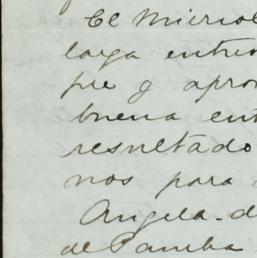 El Miércol
larga entrev
fue y apro
buena ent
resultado
nos para
Angela. d
de Pamba